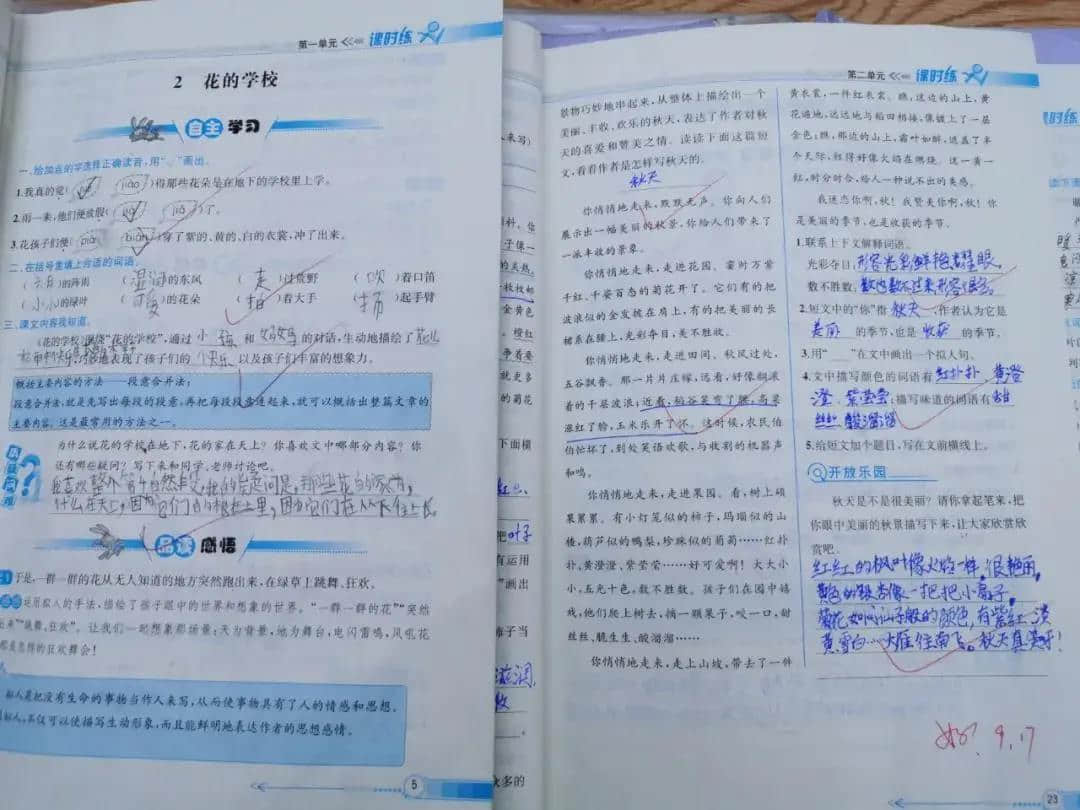 第一单元 课时练
2 花的学校
自主学习
一、给加点的字选择正确读音,用“ ”画出。
1.我真的觉( jiào)得那些花朵是在地下的学校里上学。
2.雨一来,他们便放假( jiǎ)了。
3.花孩子们便(pián biàn)穿了紫的、黄的、白的衣裳,冲了出来。
二、在括号里填上合适的词语。
( )的阵雨 (湿润)的东风 (走)过荒野 (吹)着口笛
(小小)的绿叶 (可爱)的花朵 ( )着大手 (扬)起手臂
三、课文内容我知道。
《花的学校》围绕“花的学校”,通过 小孩 和 妈妈 的对话,生动地描绘了
地表现了孩子们的 快乐 以及孩子们丰富的想象力。
概括主要内容的方法——段意合并法:
段意合并法,就是先写出每段的段意,再把每段段意连起来,就可以概括出整篇文章的
主要内容。这是最常用的方法之一。
为什么说花的学校在地下,花的家在天上?你喜欢文中哪部分内容?你
还有哪些疑问?写下来和同学、老师讨论吧。
什么在天上,因为它们
品读感悟
于是,一群一群的花从无人知道的地方突然跑出来,在绿草上跳舞、狂欢。
运用拟人的手法,描绘了孩子眼中的世界和想象的世界。“一群一群的花”“突然
出来”“跳舞、狂欢”。让我们一起想象那场景:天为背景,地为舞台,电闪雷鸣,风吼花
那是怎样的狂欢舞会!
拟人是把没有生命的事物当作人来写,从而使事物具有了人的情感和思想。
拟人,不仅可以使描写生动形象,而且能鲜明地表达作者的思想感情。
5
来写)
料。你
枝枚邮
金黄色
橙红
争着要
就更多
的菊花
下面横
把叶子
有运用
”画出
柿子当
滋润
众多的
第二单元 课时练
景物巧妙地串起来,从整体上描绘出一个
美丽、丰收、欢乐的秋天,表达了作者对秋
天的喜爱和赞美之情。读读下面这篇短
文,看看作者是怎样写秋天的。
秋天
你悄悄地走来,默默无声。你向人们
展示出一幅美丽的秋景,你给人们带来了
一派丰收的景象。
你悄悄地走来,走进花园。霎时万紫
千红,千姿百态的菊花开了。它们有的把
波浪似的金发披在肩上,有的把美丽的长
裙系在腰上,光彩夺目,美不胜收。
你悄悄地走来,走进田间。秋风过处,
五谷飘香。那一片片庄稼,远看,好像翻滚
着的千层波浪;近看,稻谷笑弯了腰,高粱
涨红了脸,玉米乐开了怀。这时候,农民伯
伯忙坏了,到处笑语欢歌,与收割的机器声
和鸣。
你悄悄地走来,走进果园。看,树上硕
果累累。有小灯笼似的柿子,玛瑙似的山
楂,葫芦似的鸭梨,珍珠似的葡萄……红扑
扑,黄澄澄,紫莹莹……好可爱啊!大大小
小,五光十色,数不胜数。孩子们在园中嬉
戏,他们爬上树去,摘一颗果子,咬一口,甜
丝丝、脆生生、酸溜溜……
你悄悄地走来,走上山坡,带去了一件
黄衣裳,一件红衣裳。瞧,这边的山上,黄
花遍地,远远地与稻田相接,像镀上了一层
金色;瞧,那边的山上,霜叶如醉,遮盖了半
个天际,红得好像火焰在燃烧。这一黄一
红,时分时合,给人一种说不出的美感。
我迷恋你啊,秋!我赞美你啊,秋!你
是美丽的季节,也是收获的季节。
1.联系上下文解释词语。
光彩夺目:形容光彩鲜艳耀眼
数不胜数:数也数不过来,形容很多。
2.短文中的“你”指 秋天 ,作者认为它是
美丽 的季节,也是 收获 的季节。
3.用“ ”在文中画出一个拟人句。
4.文中描写颜色的词语有 红扑扑 黄澄
澄、紫莹莹;描写味道的词语有 甜
丝丝 酸溜溜
5.给短文加个题目,写在文前横线上。
开放乐园
秋天是不是很美丽?请你拿起笔来,把
你眼中美丽的秋景描写下来,让大家欣赏欣
赏吧。
红红的枫叶像火焰一样,很艳丽,
黄色的银杏像一把把小扇子,
菊花如 般的颜色,有紫红、淡
黄、雪白…大雁往南飞。秋天真美呀!
9.17
23
课时练